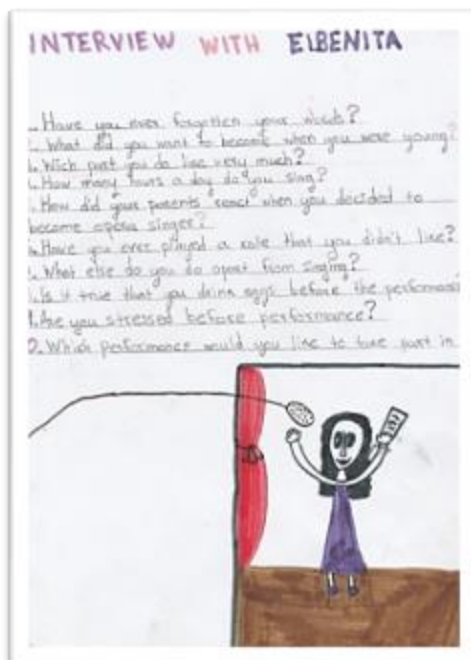 INTERVIEW WITH ELBENITA
Have you ever forgotten your words?
What did you want to become when you were young?
Wich part you do like very much?
How many hours a day do you sing?
How did your parents react when you decided to
become opera singer?
Have you ever played a role that you didn't like?
What else do you do apart from singing?
Is it true that you drink eggs before the
Are you stressed before performance?
Which performance would you like to take part in